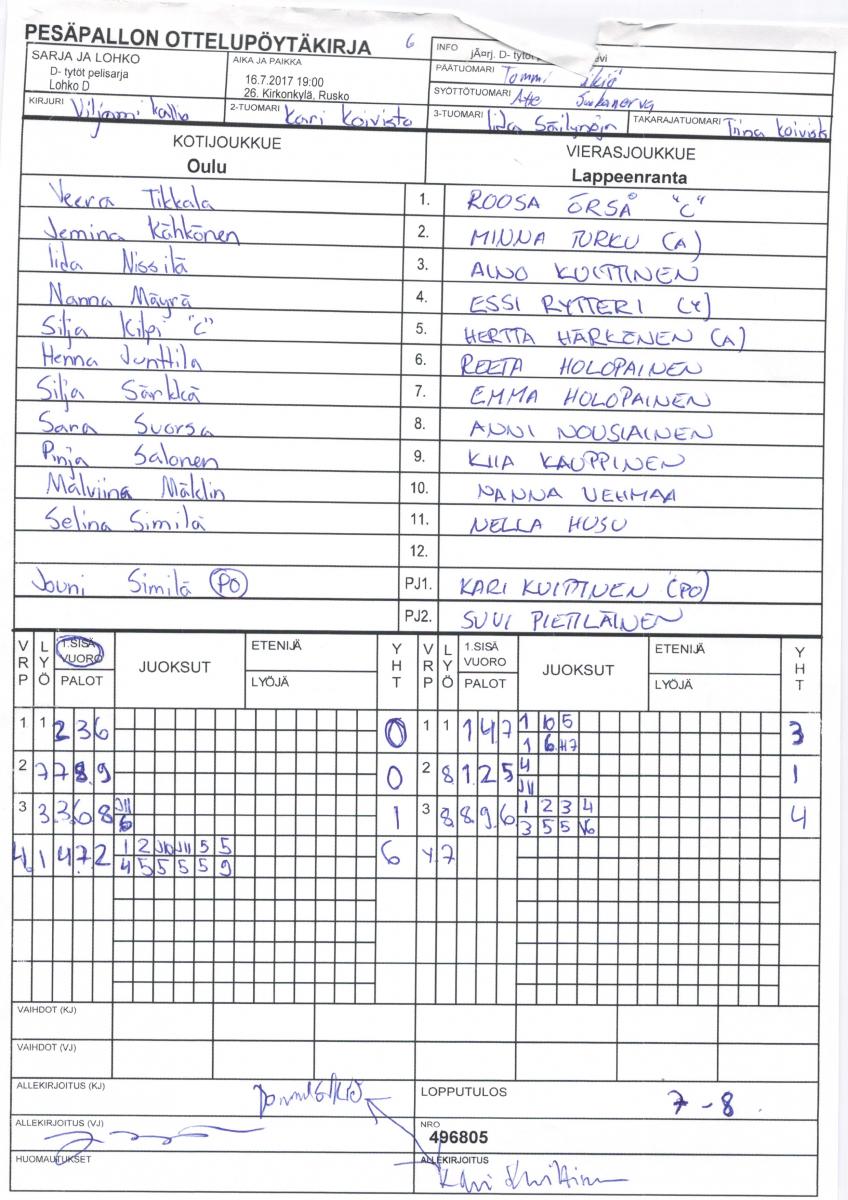 PESÄPALLON OTTELUPÖYTÄKIRJA 6
INFO jÃ¤rj. D- tytöt
SARJA JA LOHKO
D- tytöt pelisarja
Lohko D
AIKA JA PAIKKA
16.7.2017 19:00
26. Kirkonkylä, Rusko
PÄÄTUOMARI Tommi
SYÖTTÖTUOMARI Atte
KIRJURI Viljami Kallio
2-TUOMARI Kari Koivisto
3-TUOMARI Iida Säilynoja
TAKARAJATUOMARI Tiina Koivisto
KOTIJOUKKUE
Oulu
VIERASJOUKKUE
Lappeenranta
Veera Tikkala 1. ROOSA ÖRSÅ "C"
Jemina Kähkönen 2. MINNA TURKU (A)
Iida Nissilä 3. AINO KUITTINEN
Nanna Mäyrä 4. ESSI RYTTERI (Y)
Silja Kilpi "C" 5. HERTTA HÄRKÖNEN (A)
Henna Junttila 6. REETA HOLOPAINEN
Silja Särkkä 7. EMMA HOLOPAINEN
Sara Suorsa 8. ANNI NOUSIAINEN
Pinja Salonen 9. KIIA KAUPPINEN
Malviina Mäklin 10. NANNA VEHMAA
Selina Similä 11. NELLA HUSU
12.
Jouni Similä (PO) PJ1. KARI KUITTINEN (PO)
PJ2. SUVI PIETILÄINEN
VRP LYÖ 1.SISÄ VUORO PALOT JUOKSUT ETENIJÄ LYÖJÄ YHT VRP LYÖ 1.SISÄ VUORO PALOT JUOKSUT ETENIJÄ LYÖJÄ YHT
1 1 2 3 6 0 1 1 1 4 7 1 10 5 3
1 6 H7
2 7 7 8 9 0 2 8 1 2 5 4 1
J11
3 3 3 6 8 J11 1 3 8 8 9 6 1 2 3 4 4
6 3 5 5 V6
4. 1 4 7 2 1 2 J10 J11 5 5 6 Y. 7
4 5 5 5 5 9
VAIHDOT (KJ)
VAIHDOT (VJ)
ALLEKIRJOITUS (KJ)
LOPPUTULOS 7 - 8
ALLEKIRJOITUS (VJ)
NRO
496805
HUOMAUTUKSET
ALLEKIRJOITUS
Kari Kuittinen